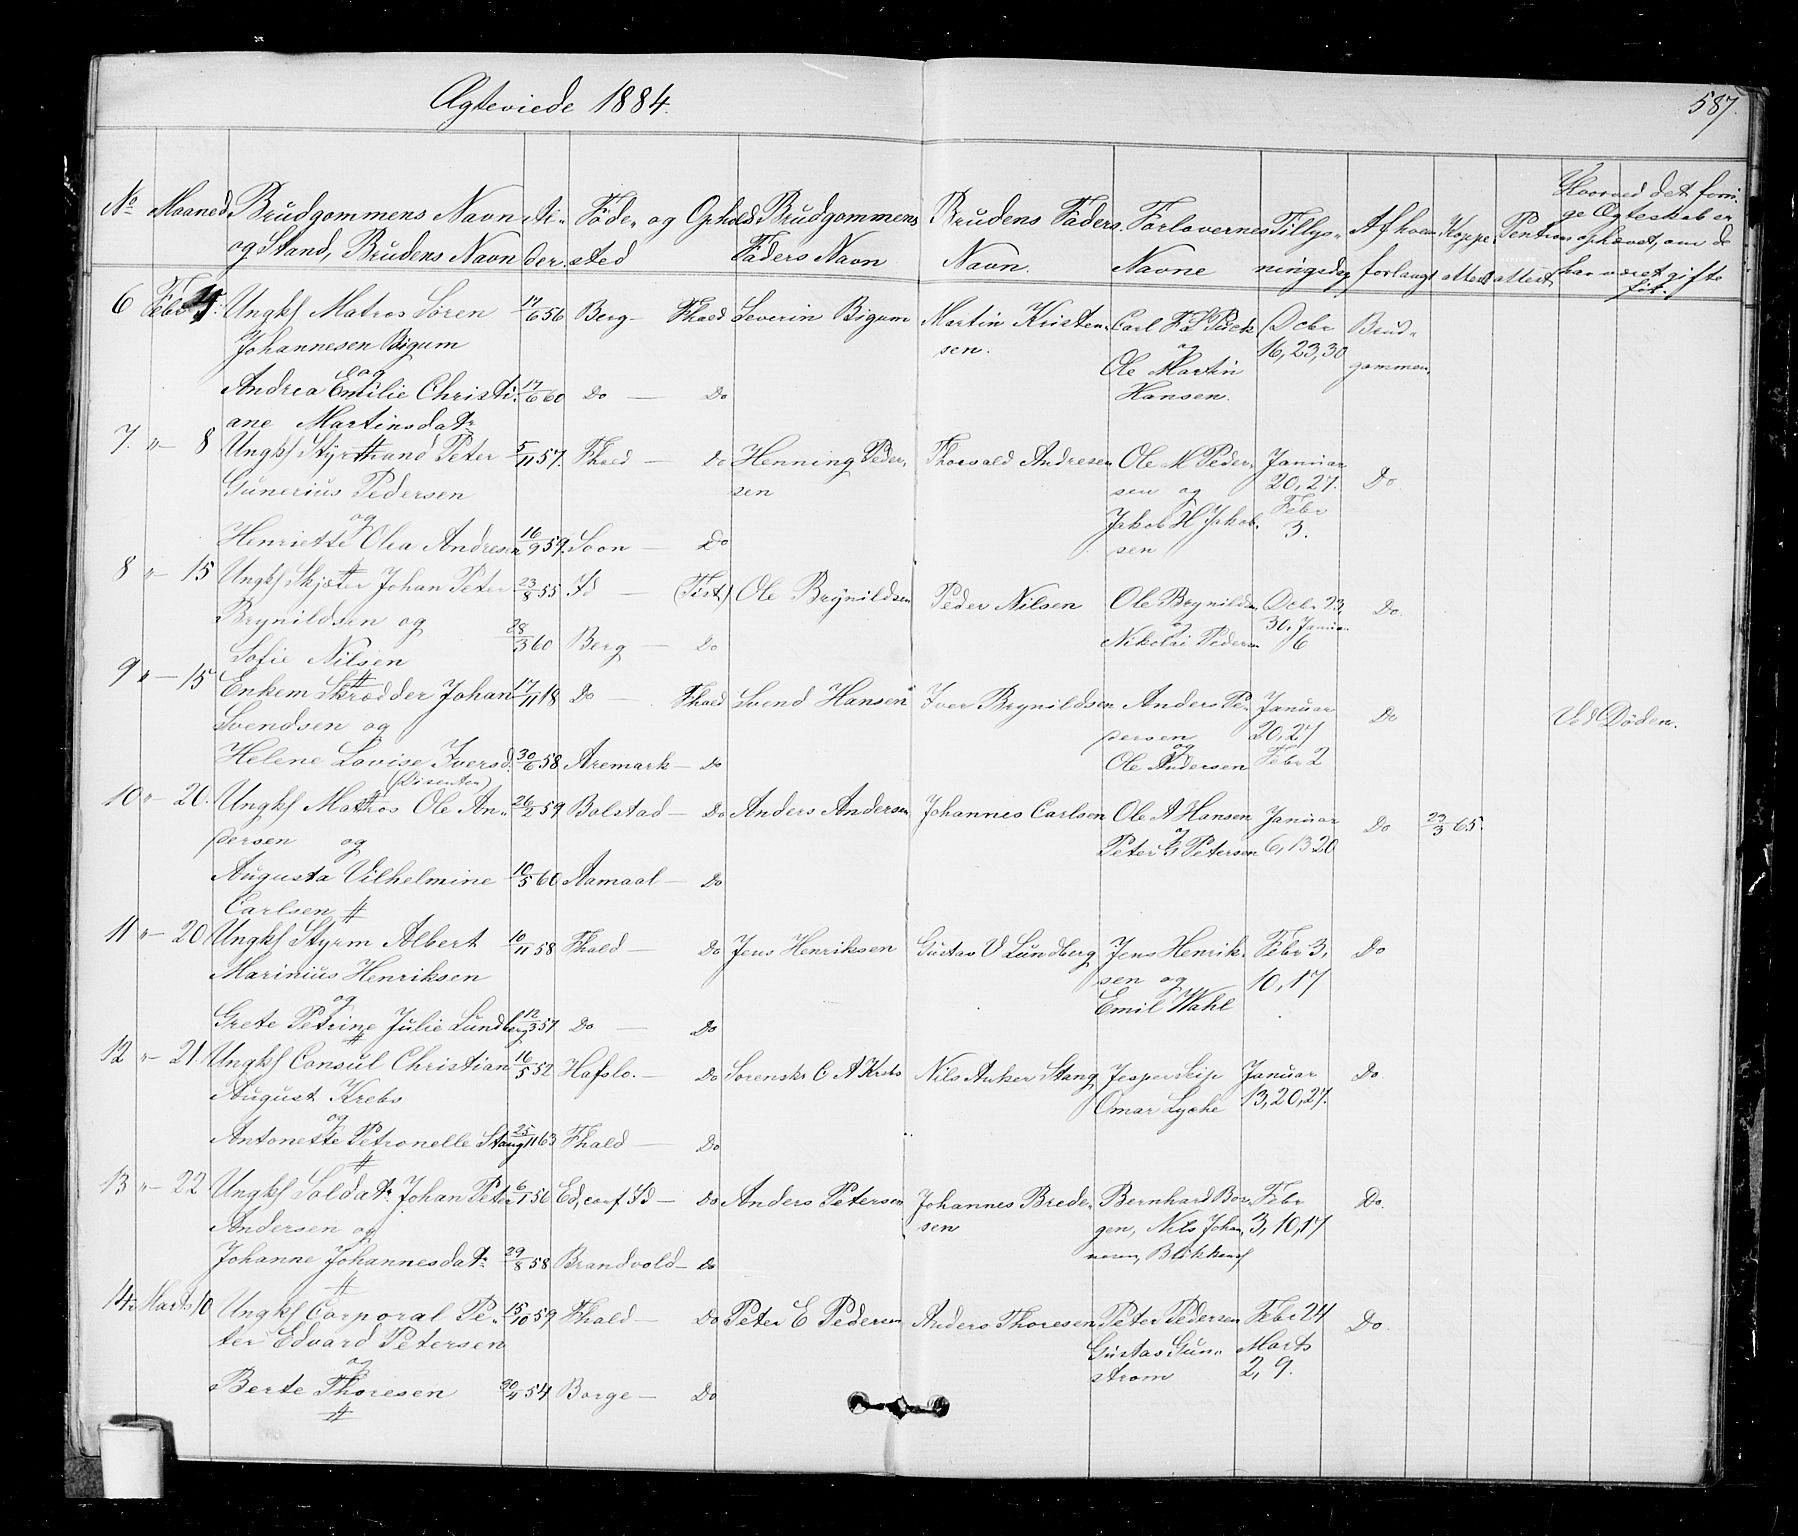 Ægteviede 1884.
587.
No Maaned Brudgommens Navn og Stand, Brudens Navn Al- der. Føde- og Ophold sted Brudgommens Faders Navn Brudens Faders Navn. Forlovernes Navne Tillys- ningsdag Af hvem forlangt Koppe attest attest Hvorved det forri- ge Ægteskab er ophævet, om de har været gifte før.
6 Febr Ungkf Matros Sören 17/6 56 Berg - Fhald Severin Bigum Martin Kristen- Carl Dcbr Brud-
Johannesen Bigum sen. og 16, 23, 30 gommen
og Ole Martin
Andrea Emilie Christi- 17/6 60 Do - Do Hansen.
ane Martinsdatr
7. " - 8 Ungkf Styrmand Peter 5/11 57. Fhald - Do Henning Peder- Thorvald Andresen Ole M Peder- Januar Do
Gunerius Pedersen sen sen og 20, 27.
og Jakob H Jakob- Febr
Henriette Olea Andresen 16/9 59. Soon - Do sen 3.
8 " - 15 Ungkf Skjøter Johan Peter 23/8 55 Id - (Tist) Ole Brynildsen Peder Nilsen Ole Brynilds Dcbr 23, Do
Brynildsen og og 30, Januar
Sofie Nilsen 28/3 60 Berg - Do Nikolai Pedersen 6
9 " - 15 Enkem Skrædder Johan 17/11 18 Do - Fhald Svend Hansen Iver Brynildsen Anders Pe- Januar Do Ved Døden.
Svendsen og dersen 20, 27
Helene Lovise Iversd. 30/6 58 Aremark - Do og Ole Andersen Febr 2
(Disenter)
10 " - 20. Ungkf Matros Ole An- 26/2 59 Bolstad - Do Anders Andersen Johannes Carlsen Ole A Hansen Januar Do 29/3 65.
dersen og og Peter G Petersen 6, 13 20
Augusta Vilhelmine 10/5 60 Aamaal - Do
Carlsen
11 " - 20 Ungkf Styrm Albert 10/11 58 Fhald - Do Jens Henriksen Gustav V Lundberg Jens Henrik- Febr 3, Do
Marinius Henriksen sen og 10, 17
og Emil Wahl
Grete Petrine Julie Lundberg 12/3 57 Do - Do
12 " - 21. Ungkf Consul Christian 16/5 52 Hafslo. - Do Sorenskr C A Krebs Nils Anker Stang Jesperskip Januar Do
August Krebs Omar Lyche 13, 20, 27.
og
Antonette Petronelle Stang 25/11 63 Fhald - Do
13 " - 22 Ungkf Soldatr Johan Peter 6/1 56 Ed, conf Id - Do Anders Petersen Johannes Brede- Bernhard Bor- Febr Do.
Andersen og sen gen, Nils Johan- 3, 10, 17
Johanne Johannesdatr 29/8 58 Brandvold - Do
14. Marts 10 Ungkf Corporal Pe- 15/10 59 Fhald - Do Peter E Pedersen Anders Thoresen Peter Pedersen Febr 24 Do.
ter Edvard Petersen Gustav Gun- Marts
og strøm 2, 9.
Berte Thoresen 30/4 54 Borge - Do